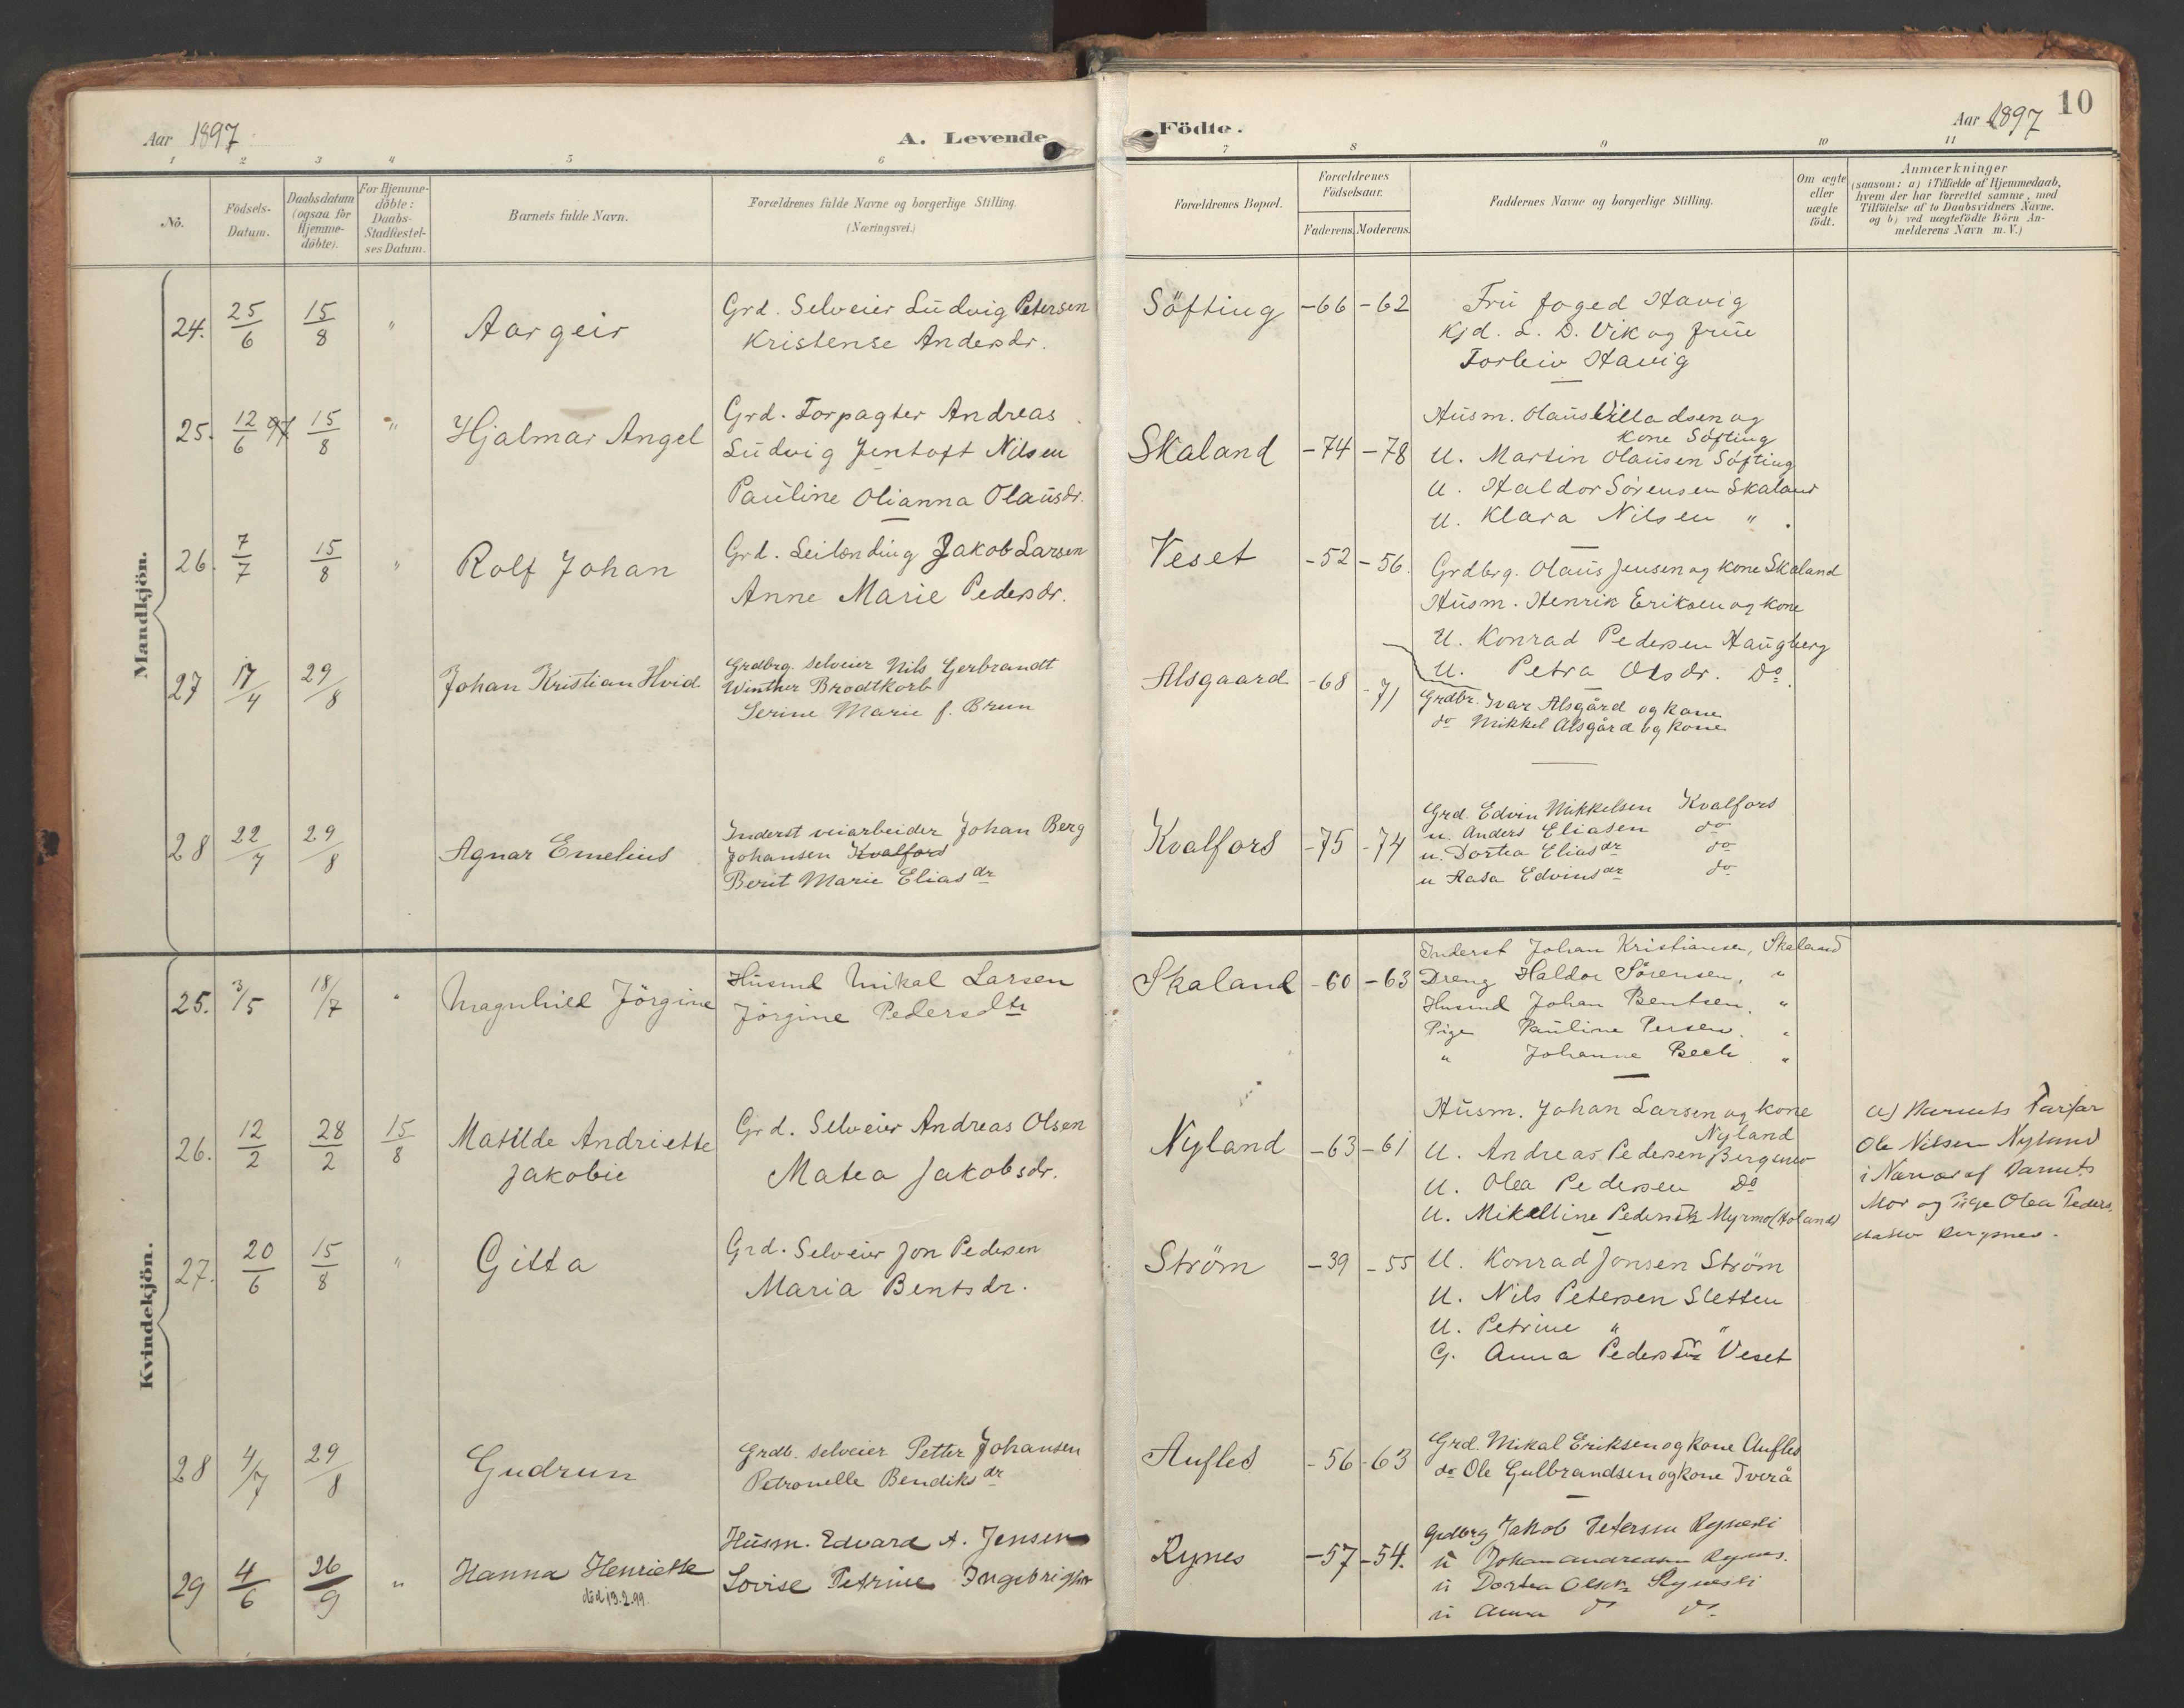 Aar 1897
A. Levende
Födte.
Aar 1897
10
1 2 3 4 5 6 7 8 9 10 11
No.
Födsels-
Datum.
Daabsdatum
(ogsaa for
Hjemme-
döbte).
For Hjemme-
döbte:
Daabs-
Stadfæstel-
ses Datum.
Barnets fulde Navn.
Forældrenes fulde Navne og borgerlige Stilling.
(Næringsvei.)
Forældrenes Bopæl.
Forældrenes
Födselsaar.
Faderens. Moderens.
Faddernes Navne og borgerlige Stilling.
Om ægte
eller
uægte
födt.
Anmærkninger
(saasom: a) i Tilfælde af Hjemmedaab,
hvem der har forrettet samme, med
Tilföielse af to Daabsvidners Navne.
og b) ved uægtefödte Börn An-
melderens Navn m. V.)
Mandkjön.
24. 25/6 15/8 " Aargeir
Grd. Selveier Ludvig Petersen
Kristense Andersdr.
Söfting -66 -62
Fru foged Havig
Kjd. L. D. Vik og frue
Torleiv Havig
25. 12/6 97 15/8 " Hjalmar Angel
Grd. Forpagter Andreas
Ludvig Jentoft Nilsen
Pauline Olianna Olausdr.
Skaland -74 -78
Husm. Olaus Villadsen og
kone Söfting
U. Martin Olausen Söfting
U. Haldor Sörensen Skaland
U. Klara Nilsen "
26. 7/7 15/8 " Rolf Johan
Grd. Leilending Jakob Larsen
Anne Marie Pedersdr.
Veset -52 -56.
Grdbrg. Olaus Jensen og kone Skaland
Husm. Henrik Eriksen og kone
U. Konrad Pedersen Haugberg
U. Petra Olsdr. Do.
27 17/4 29/8 Johan Kristian Hvid
Grdbrg. selveier Nils Gerbrandt
Winther Brodtkorb
Serine Marie f. Brun
Alsgaard -68 -71
Grdbr. Ivar Alsgård og kone
do Mikkel Alsgård og kone
28 22/7 29/8 Agnar Emelius
Inderst veiarbeider Johan Berg
Johansen Kvalfors
Berit Marie Eliasdr
Kvalfors -75 -74
Grd. Edvin Mikkelsen Kvalfors
u. Anders Eliasen do
u. Dortea Eliasdr do
u Aasa Edvinsdr do
Kvindekjön.
25. 3/5 18/7 " Magnhild Jörgine
Husmd Mikal Larsen
Jörgine Pedersdtr
Skaland -60 -63
Inderst Johan Kristiansen, Skaland
Dreng Haldor Sörensen, "
Husmd Johan Bentsen, "
Pige Pauline Persen. "
" Johanne Bech. "
26. 12/2 28/2 15/8 Matilde Andriette
Jakobie
Grd. Selveier Andreas Olsen
Matea Jakobsdr.
Nyland -63 -61
Husm. Johan Larsen og kone
Nyland
U. Andreas Pedersen Bergsnes
U. Olea Pedersen Do
U. Mikelline Pedersdr Myrmo (Holand)
a) Barnets Farfar
Ole Nilsen Nyland
i Nærvær af Barnets
Mor og Pige Olea Peders.
datter Bergsnes.
27. 20/6 15/8 " Gitta
Grd. Selveier Jon Pedersen
Maria Bentsdr.
Ström -39 -55
U. Konrad Jonsen Ström
U. Nils Petersen Sletten
U. Petrine " "
G. Anna Pedersdr Veset
28 4/7 29/8 Gudrun
Grdb. selveier Petter Johansen
Petronelle Bendiksdr
Aufles -56 -63
Grd. Mikal Eriksen og kone Aufles
do Ole Gulbrandsen og kone Tverå
29 4/6 26/9 " Hanna Henriette
död 13.2.99.
Husm. Edvard A. Jensen
Lovise Petrine Ingebrigtsdr
Rynes -57 -54.
Grdbrg Jakob Petersen Rynesli
u Johan Andreasen Rynes.
u Dortea Olsdr Rynesli
u Anna do do